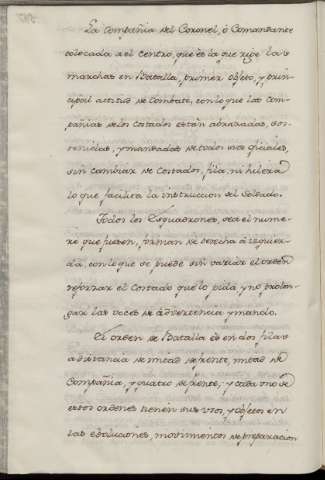 La Compañia del Coronel, ó Comandante
colocada al centro, que es la que rige las
marchas en Batalla, primer objeto, y prin-
cipal actitud de Combate, con lo que las com-
pañias de los Costados están abrazadas, sos-
tenidas, y mandadas de todos sus oficiales,
sin cambiar de Costados, fila, ni hilera
lo que facilita la instruccion del Soldado.
Todos los Esquadrones, sea el nume-
ro que fuesen, forman de derecha á izquier-
da, con lo que se puede sin variar el orden
reforzar el Costado que lo pida y no prolon-
gar las voces de advertencia y mando.
El orden de Batalla es en dos filas
a distancia de mitad de frente, mitad de
Compañia, y quatro de frente, y cada uno de
estos ordenes tienen sus usos, y objetos en
las evoluciones, movimientos de preparacion